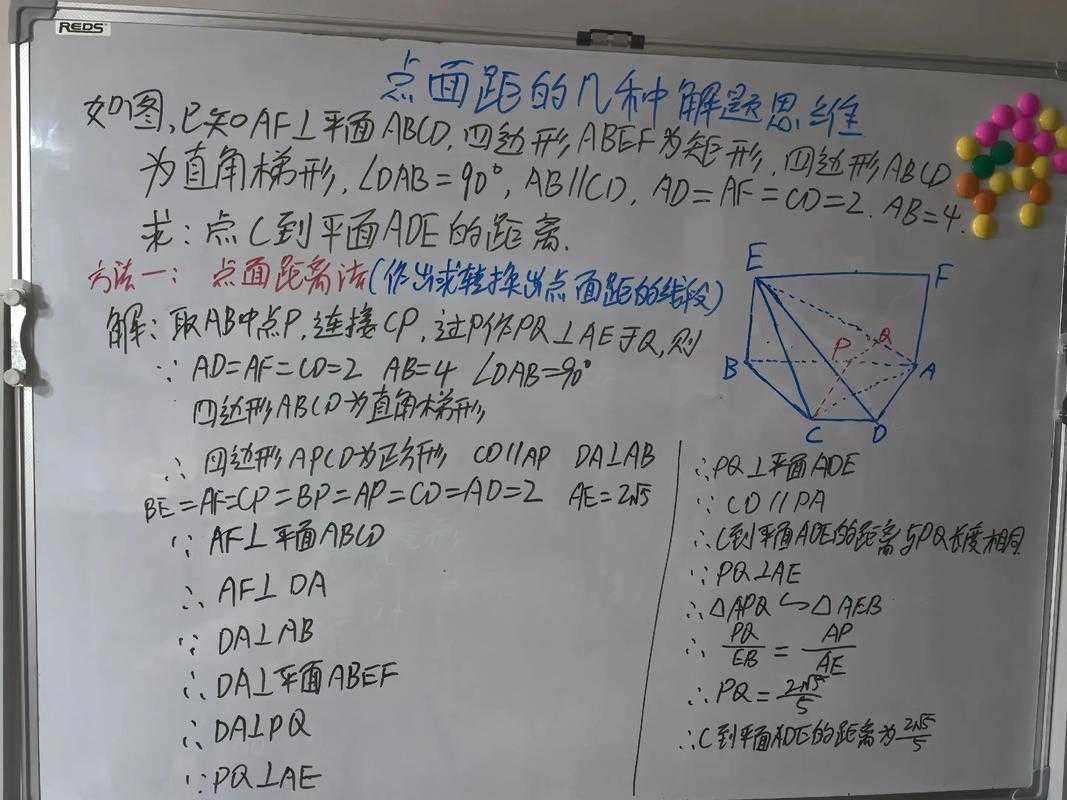 REDS
点面距的几种解题思维
如图,已知AF⊥平面ABCD,四边形ABEF为矩形,四边形ABCD
为直角梯形,∠DAB=90°,AB//CD,AD=AF=CD=2.AB=4.
求:点C到平面ADE的距离.
方法一:点面距离法(作出或转换出点面距的线段)
解:取AB中点P,连接CP,过P作PQ⊥AE于Q,则
∵AD=AF=CD=2 AB=4 ∠DAB=90°
四边形ABCD为直角梯形
∴四边形APCD为正方形 CD//AP DA⊥AB
BE=AF=CP=BP=AP=CD=AD=2 AE=2√5
∵AF⊥平面ABCD
∴AF⊥DA
∵DA⊥AB
∴DA⊥平面ABEF
∴DA⊥PQ
∵PQ⊥AE
E
F
P
Q
B
A
C
D
∴PQ⊥平面ADE
∵CD//PA
∴C到平面ADE的距离与PQ长度相同
∵PQ⊥AE
∴△APQ∽△AEB
∴PQ/EB=AP/AE
∴PQ=2√5/5
∴C到平面ADE的距离为2√5/5